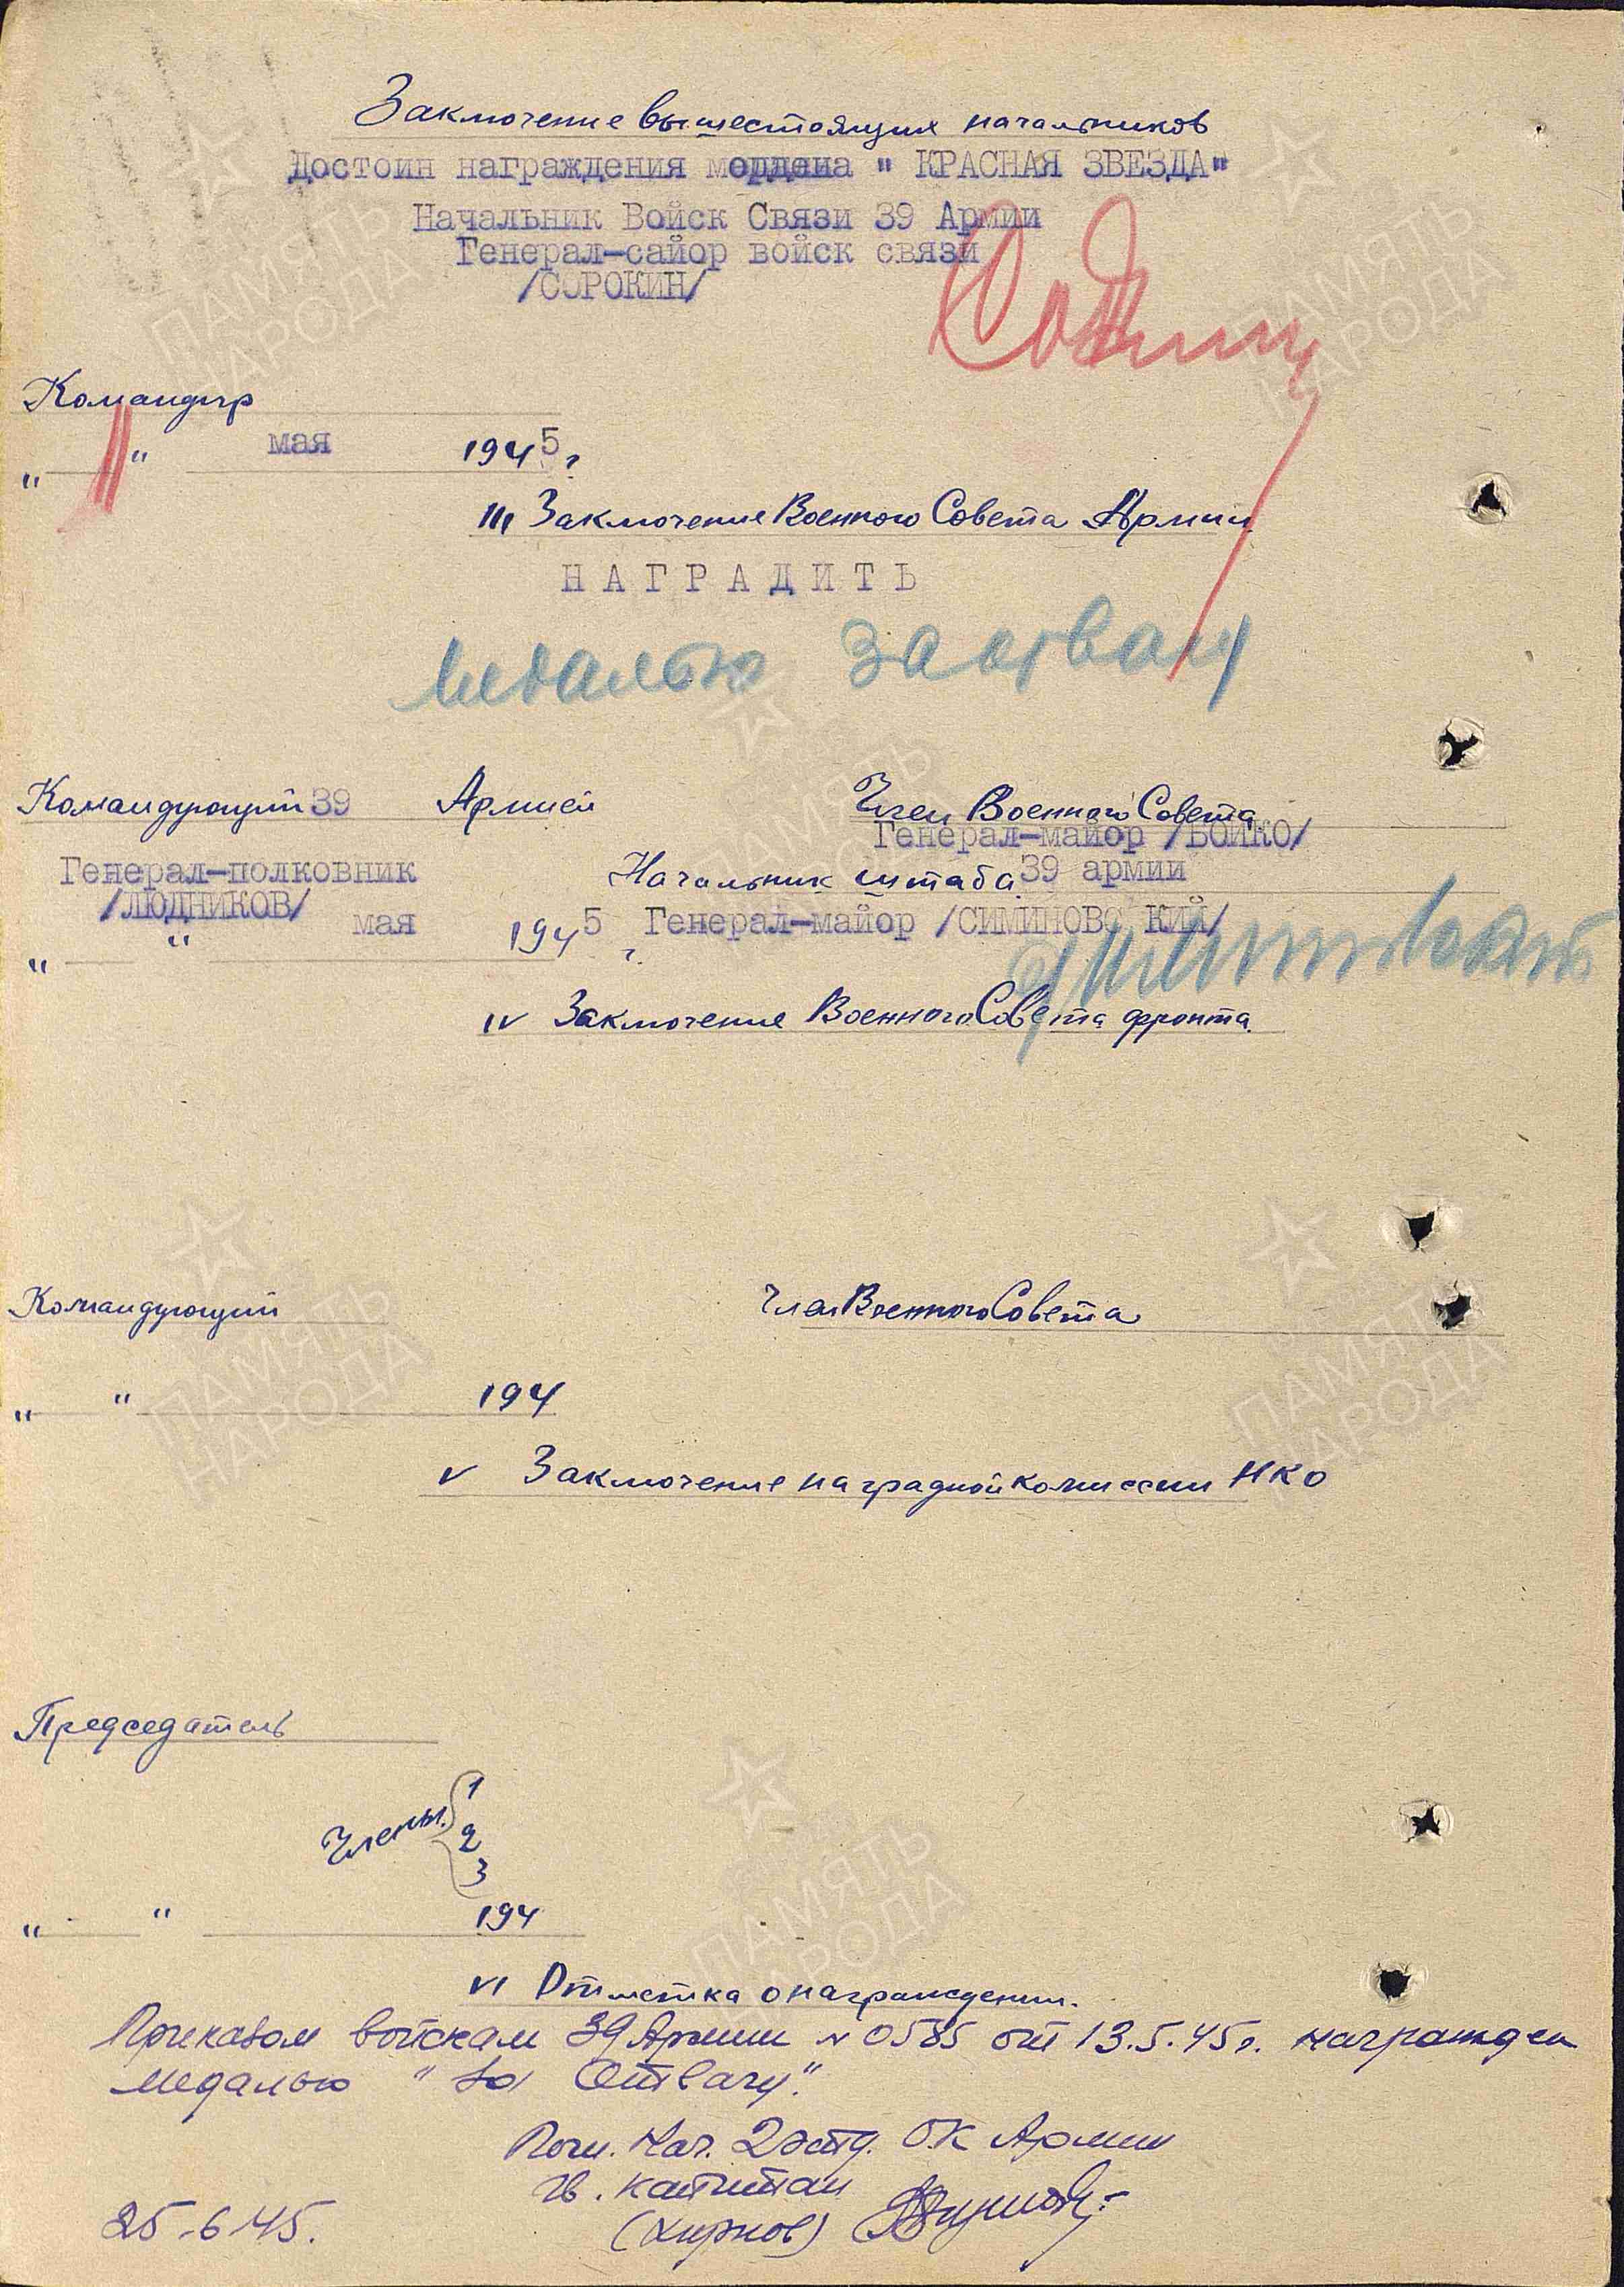 Заключение вышестоящих начальников
Достоин награждения мордена " КРАСНАЯ ЗВЕЗДА"
Начальник Войск Связи 39 Армии
Генерал-сайор войск связи
/СОРОКИН/
Командир
" " мая 1945 г
III Заключение Военного Совета Армии
НАГРАДИТЬ
медалью За отвагу
Командующий 39 Армией Член Военного Совета
Генерал-майор /БОЙКО/
Генерал-полковник Начальник штаба 39 армии
/ЛЮДНИКОВ/
" " мая 1945 г. Генерал-майор /СИМИНОВС КИЙ/
IV Заключение Военного Совета фронта.
Командующий Член Военного Совета
" " 194
V Заключение наградной комиссии НКО
Председатель
Члены. 1
2
3
" " 194
VI Отметка о награждении.
Приказом войскам 39 Армии № 0585 от 13.5.45г. награжден
медалью "За Отвагу".
Пом. Нач. 2 отд. ОК Армии
гв. капитан
25.6.45.
ПАМЯТЬ
НАРОДА